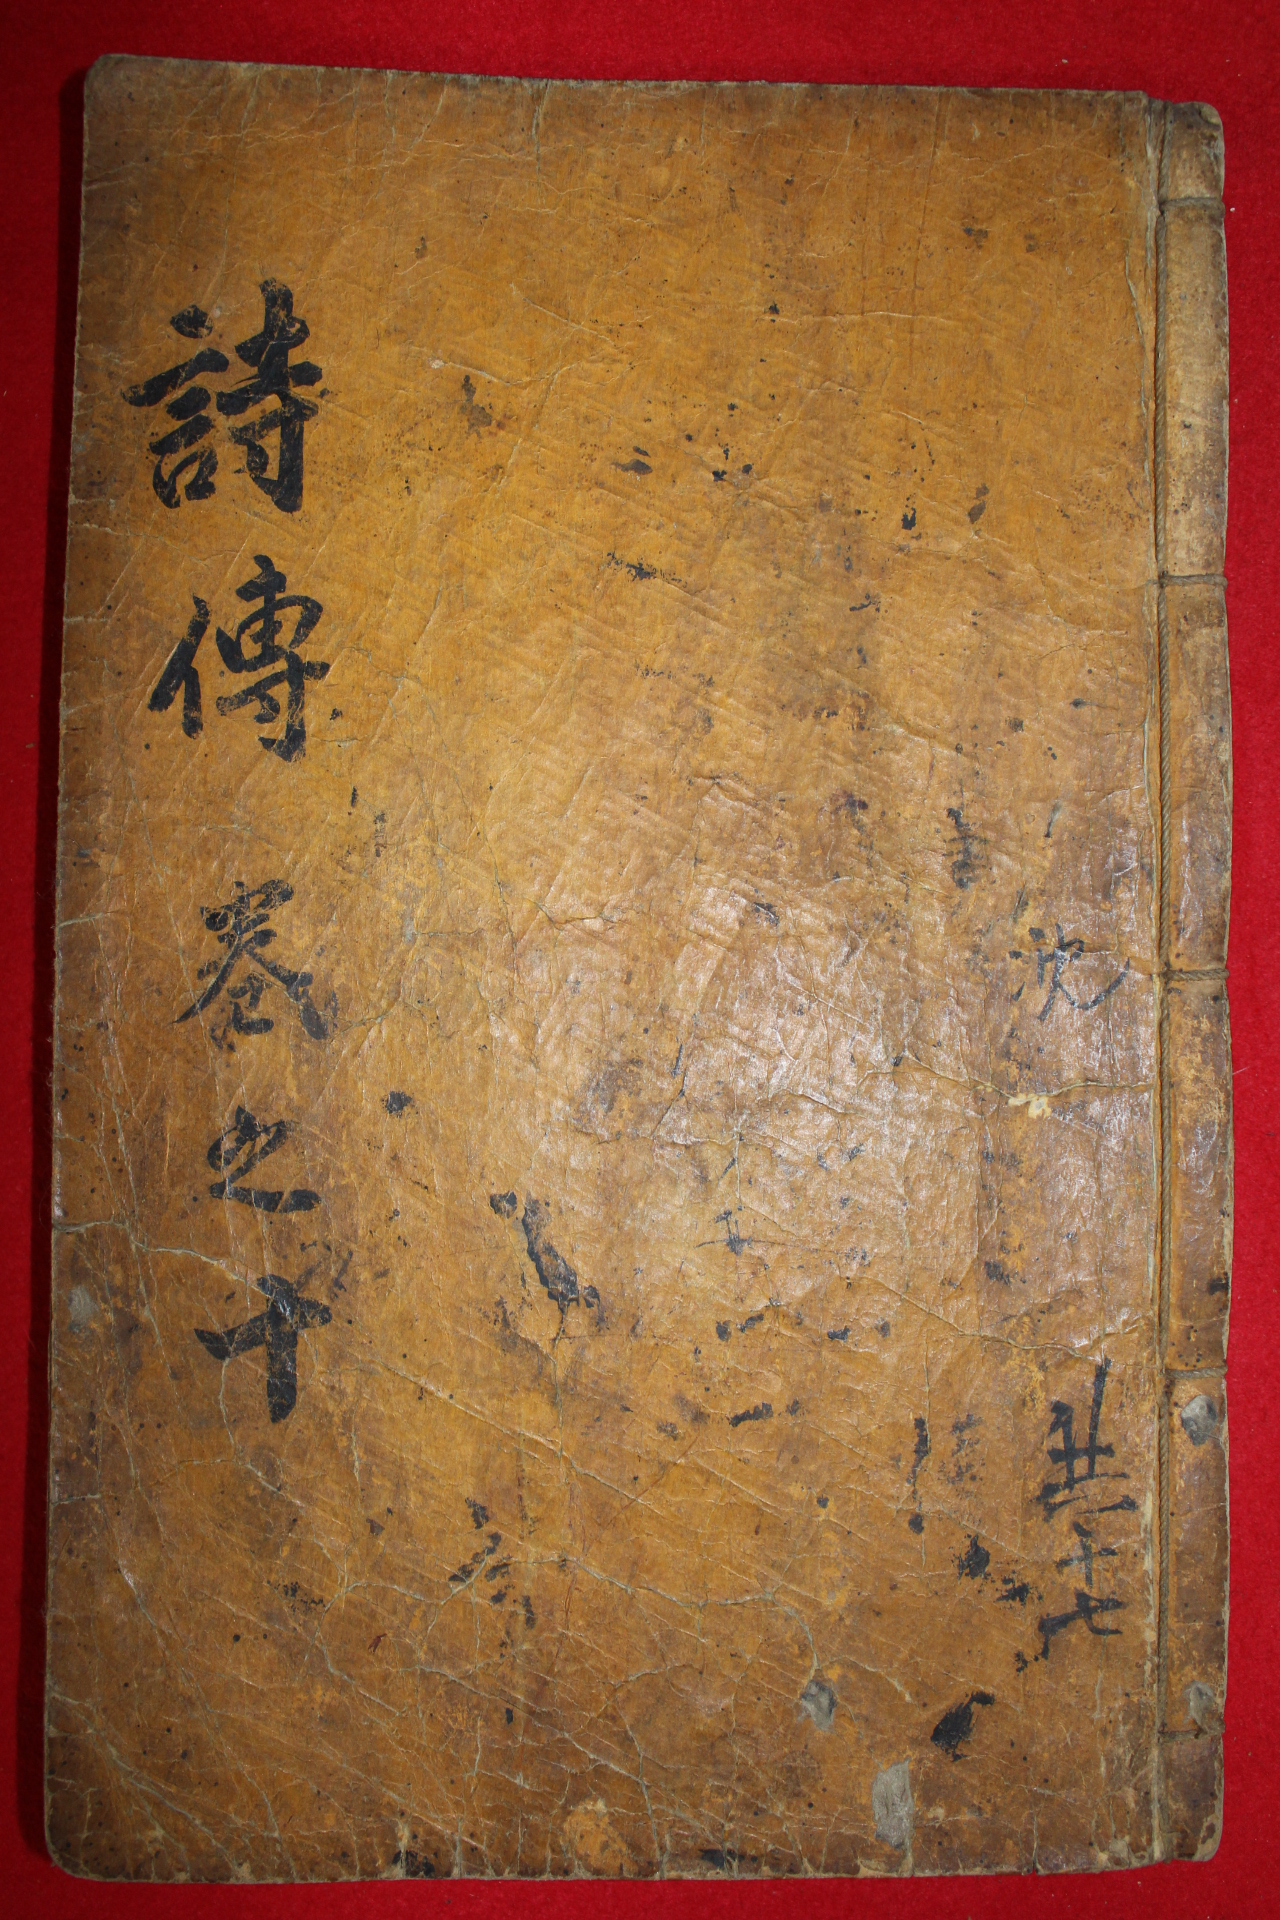 詩傳 卷之十
沈
共十七